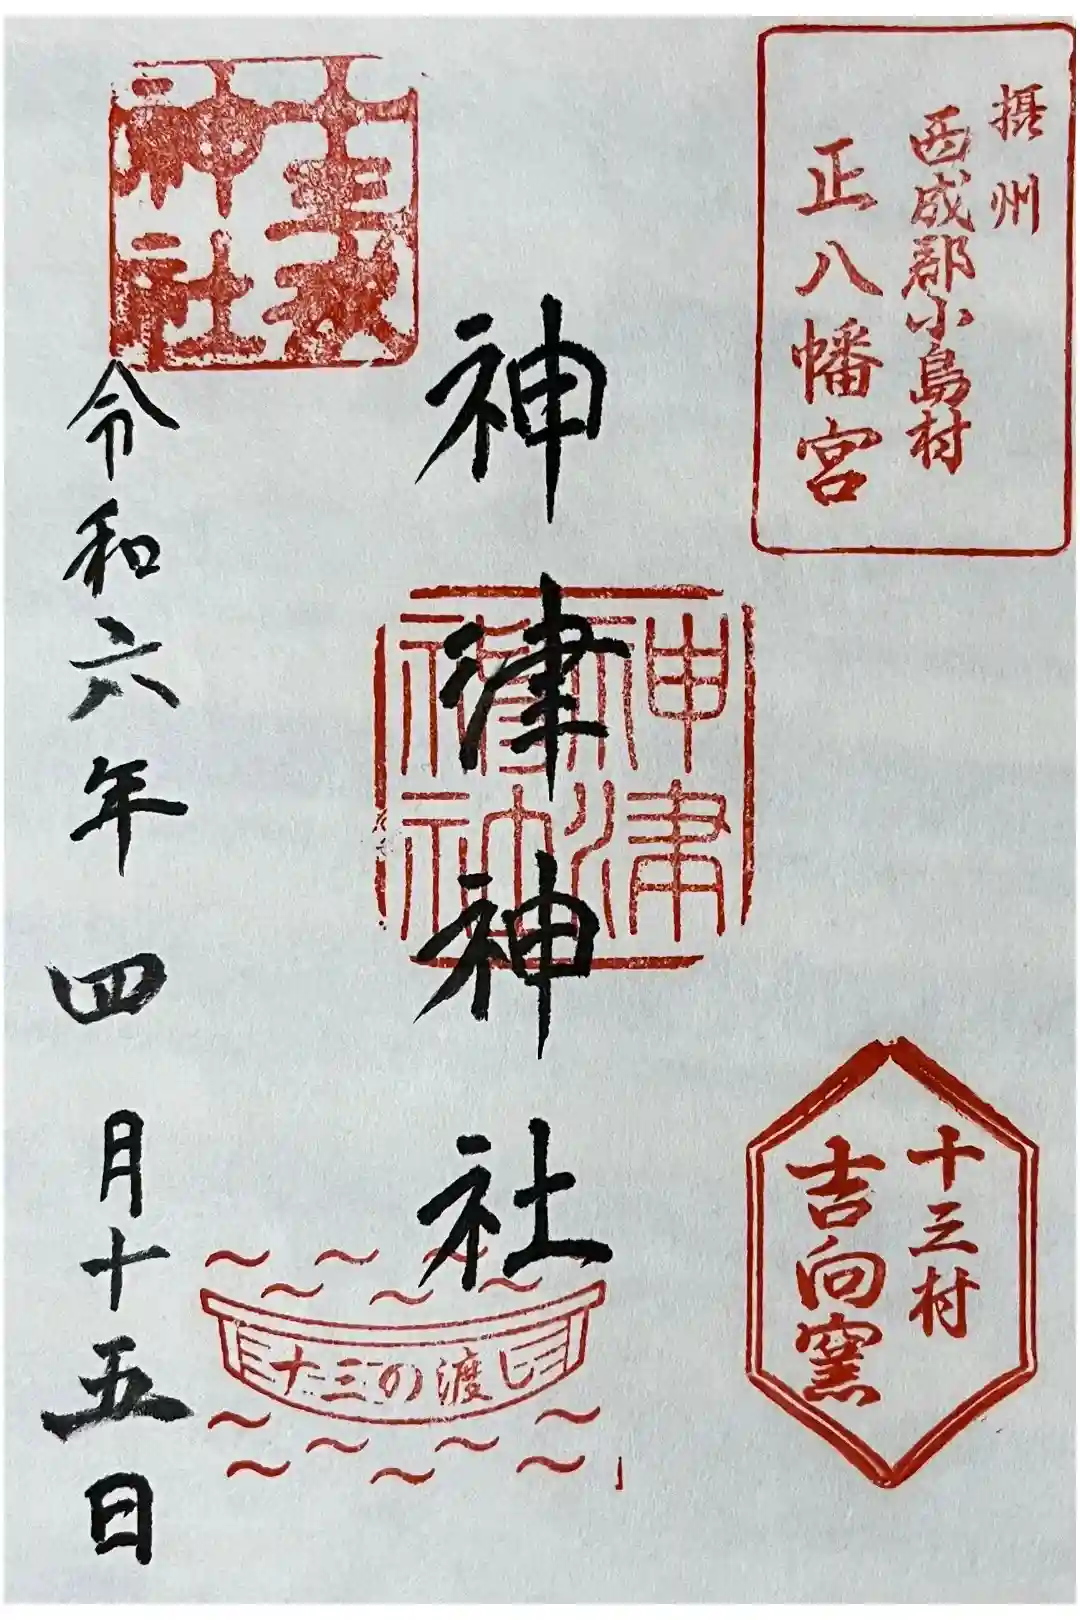 摂州
西成郡小島村
正八幡宮
十三村
吉向窯
神津神社
神津
神社
十三戎
神社
十三の渡し
令和六年四月十五日